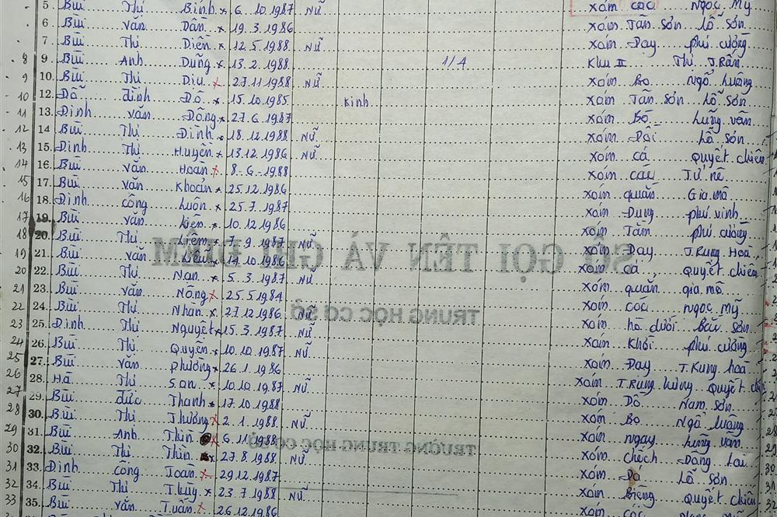 5. Bùi Thị Bính x 6.10.1987 Nữ xóm cóc Ngọc Mỹ
6. Bùi văn Dần x 19.3.1986 xóm Tân Sơn Lỗ Sơn
7. Bùi Thị Diện x 12.5.1988 Nữ xóm Day phú cường
8 9. Bùi Anh Dũng x 13.2.1988 1/4 Khu II Thị T.Trấn
9 10. Bùi Thị Dịu x 27.11.1988 Nữ xóm Bo Ngổ Luông
10 12. Đỗ đình Đô x 15.10.1985 Kinh xóm Tân Sơn Lỗ Sơn
11 13. Đinh văn Đông x 27.6.1987 xóm Bộ Lũng vân
12 14. Bùi Thị Định x 18.12.1988 Nữ xóm Lỗ Sơn
13 15. Đinh Thị Huyền x 13.12.1986 Nữ xóm cá Quyết chiến
14 16. Bùi văn Hoan x 8-6-1988 xóm cau Tử nê
15 17. Bùi văn Khoản x 25.12.1986 xóm quắn Gia mô
16 18. Đinh công Luôn x 25.7.1987 xóm Dụng phú vinh
17 19. Bùi văn 10.12.1986 xóm Tâm phú cường
18 20. Bùi Thị 7.9.1987 Nữ xóm Day T.Rung Hoà
19 21. Bùi văn 14.10.1986 xóm cá Quyết chiến
20 22. Bùi Thị Nan x 5.3.1987 Nữ xóm quắn gia mô
21 23. Bùi văn Nông x 25.5.1984 xóm cóc Ngọc Mỹ
22 24. Bùi Thị Nhàn x 27.12.1986 Nữ xóm hồ dưới Bắc Sơn
23 25. Đinh Thị Nguyệt x 15.3.1987 Nữ xóm Khôi phú cường
24 26. Bùi Thị Quyên x 10.10.1987 Nữ xóm Day T.Rung hoà
25 27. Bùi văn phương x 26.1.1986 xóm T.Rung hưng Quyết chiến
26 28. Hà Thị San x 10.10.1987 Nữ xóm Dồ Nam Sơn
27 29. Bùi đức Thanh x 17.10.1988 xóm Bo Ngổ Luông
28 30. Bùi Thị Thương x 2.1.1988 Nữ xóm ngay Lũng vân
29 31. Bùi Anh Thìn 6.11.1988 xóm chếch Đông Lai
30 32. Bùi Thị Thìn x 27.8.1988 Nữ xóm Lỗ Sơn
31 33. Đinh công Toàn x 29.12.1987 xóm Biệng Quyết chiến
32 34. Bùi Thị Thuý x 23.7.1988 Nữ xóm cóc Ngọc Mỹ
33 35. Bùi văn Tuân x 26.12.1986
SỔ GỌI TÊN VÀ GHI ĐIỂM
TRUNG HỌC CƠ SỞ
TRƯỜNG TRUNG HỌC CƠ SỞ